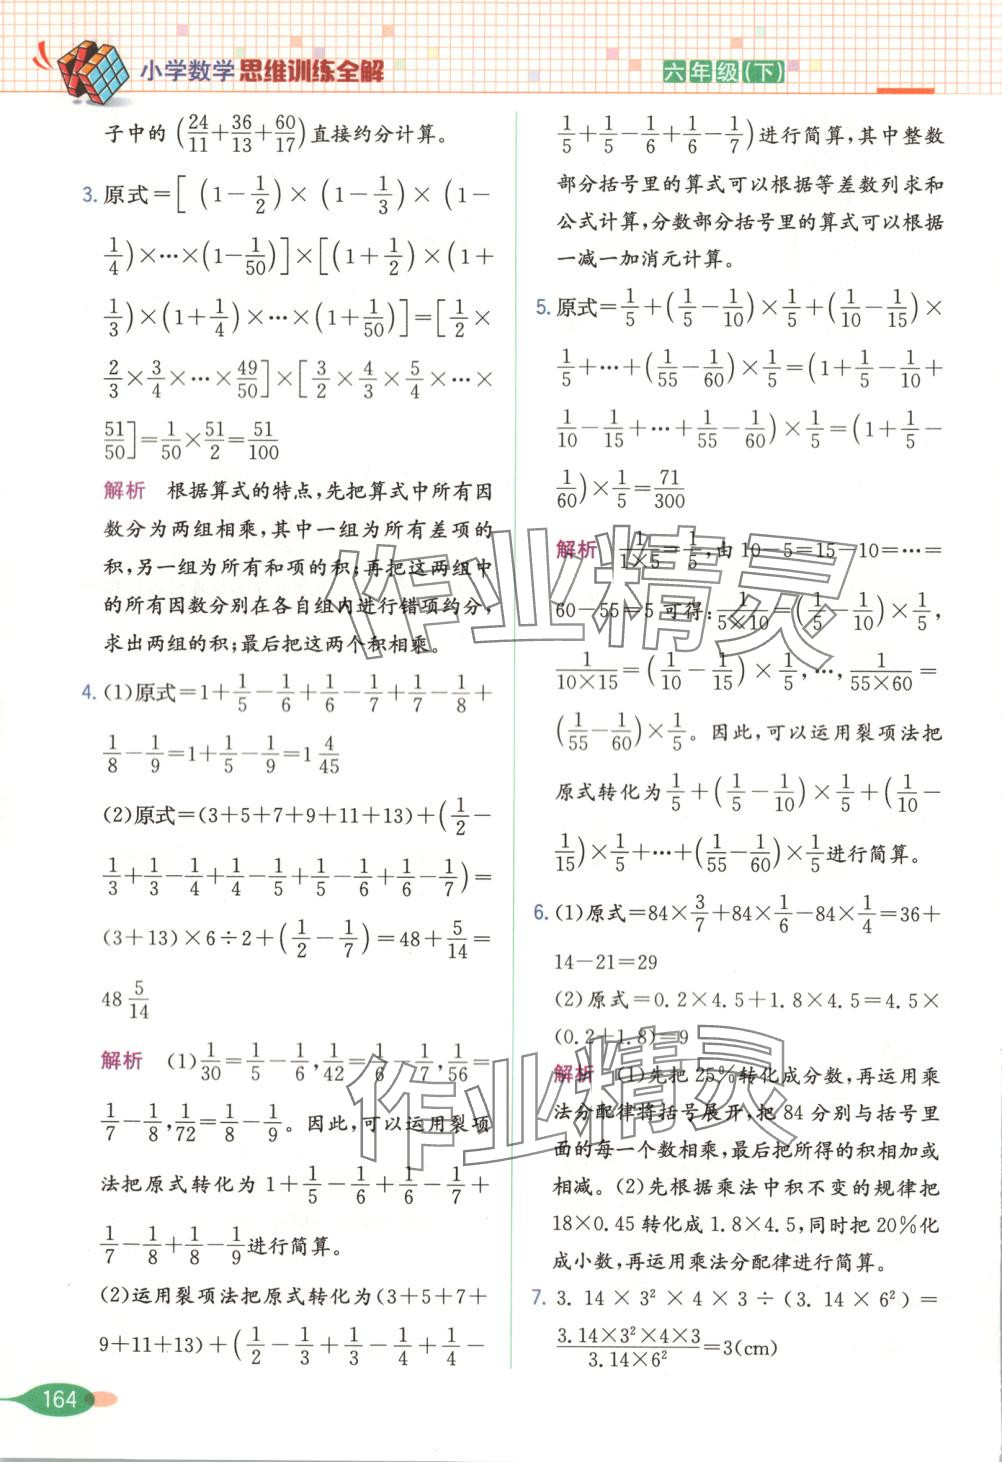 小学数学 思维训练全解
六年级(下)
子中的 (24/11+36/13+60/17) 直接约分计算。
3. 原式=[(1-1/2)×(1-1/3)×(1-
1/4)×…×(1-1/50)]×[(1+1/2)×(1+
1/3)×(1+1/4)×…×(1+1/50)]=[1/2×
2/3×3/4×…×49/50]×[3/2×4/3×5/4×…×
51/50]=1/50×51/2=51/100
解析 根据算式的特点,先把算式中所有因
数分为两组相乘,其中一组为所有差项的
积,另一组为所有和项的积;再把这两组中
的所有因数分别在各自组内进行错项约分,
求出两组的积;最后把这两个积相乘。
4. (1)原式=1+1/5-1/6+1/6-1/7+1/7-1/8+
1/8-1/9=1+1/5-1/9=1 4/45
(2)原式=(3+5+7+9+11+13)+(1/2-
1/3+1/3-1/4+1/4-1/5+1/5-1/6+1/6-1/7)=
(3+13)×6÷2+(1/2-1/7)=48+5/14=
48 5/14
解析 (1)1/30=1/5-1/6,1/42=1/6-1/7,1/56=
1/7-1/8,1/72=1/8-1/9。因此,可以运用裂项
法把原式转化为 1+1/5-1/6+1/6-1/7+
1/7-1/8+1/8-1/9进行简算。
(2)运用裂项法把原式转化为(3+5+7+
9+11+13)+(1/2-1/3+1/3-1/4+1/4-
1/5+1/5-1/6+1/6-1/7)进行简算,其中整数
部分括号里的算式可以根据等差数列求和
公式计算,分数部分括号里的算式可以根据
一减一加消元计算。
5. 原式=1/5+(1/5-1/10)×1/5+(1/10-1/15)×
1/5+…+(1/55-1/60)×1/5=(1+1/5-1/10+
1/10-1/15+…+1/55-1/60)×1/5=(1+1/5-
1/60)×1/5=71/300
解析 1/(1×5)=1/5,由 10-5=15-10=…=
60-55=5 可得:1/(5×10)=(1/5-1/10)×1/5,
1/(10×15)=(1/10-1/15)×1/5,…,1/(55×60)=
(1/55-1/60)×1/5。因此,可以运用裂项法把
原式转化为1/5+(1/5-1/10)×1/5+(1/10-
1/15)×1/5+…+(1/55-1/60)×1/5进行简算。
6. (1)原式=84×3/7+84×1/6-84×1/4=36+
14-21=29
(2)原式=0.2×4.5+1.8×4.5=4.5×
(0.2+1.8)=9
解析 (1)先把 25%转化成分数,再运用乘
法分配律将括号展开,把 84 分别与括号里
面的每一个数相乘,最后把所得的积相加或
相减。(2)先根据乘法中积不变的规律把
18×0.45 转化成 1.8×4.5,同时把 20%化
成小数,再运用乘法分配律进行简算。
7. 3.14×3²×4×3÷(3.14×6²)=
(3.14×3²×4×3)/(3.14×6²)=3(cm)
164
作业精灵
作业精灵